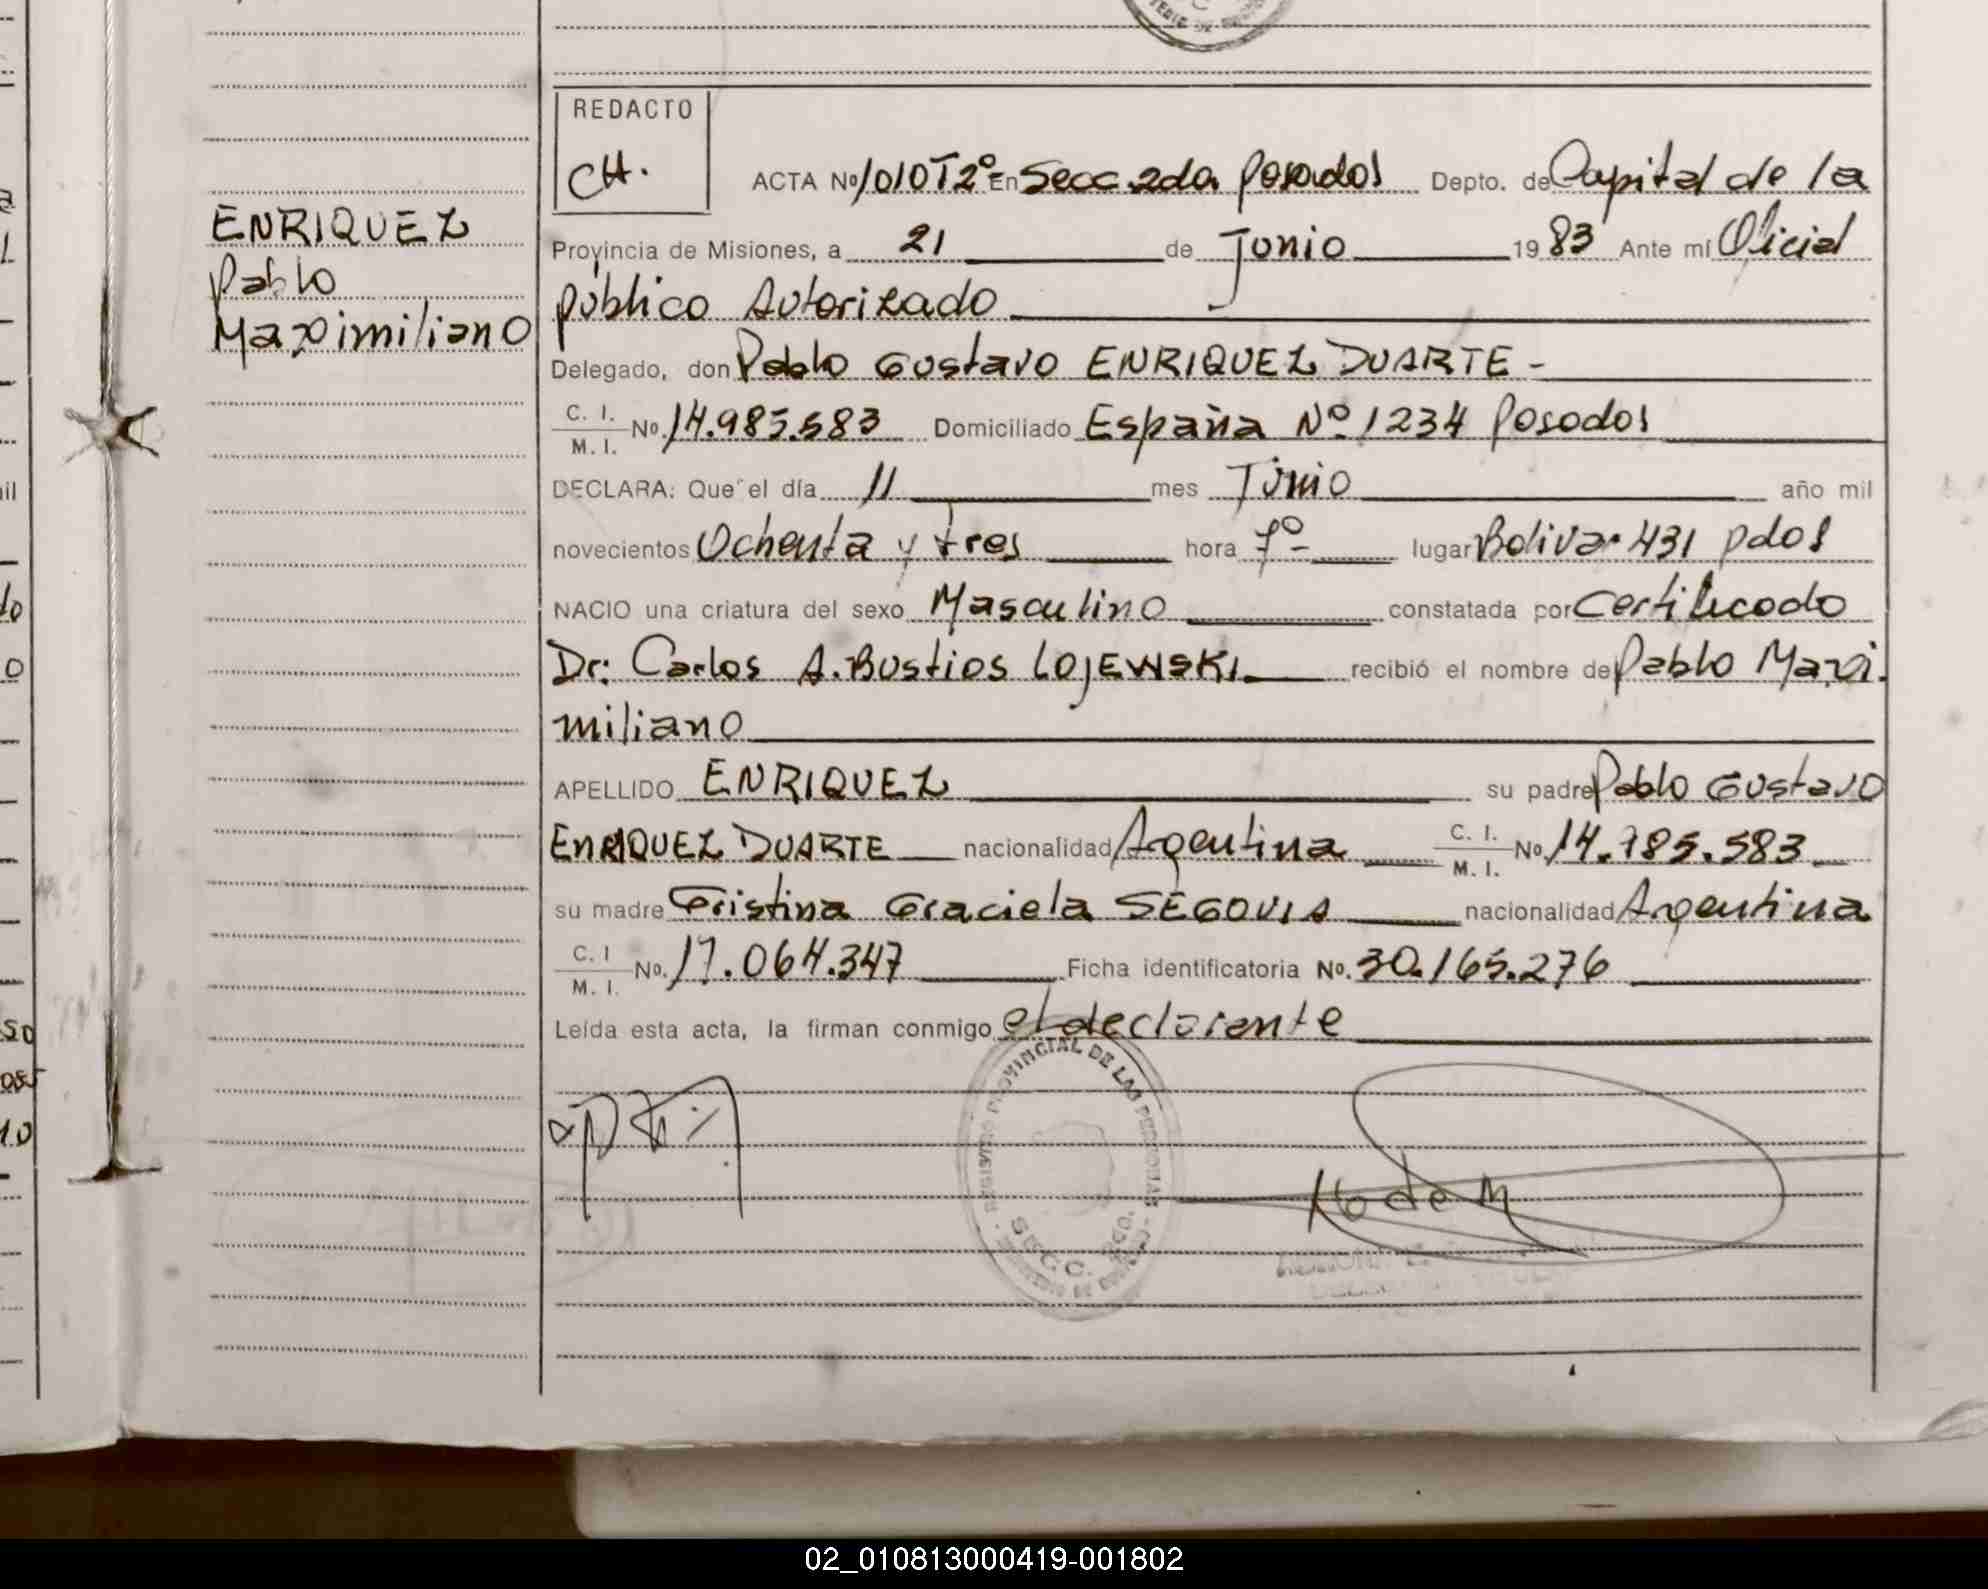 REDACTO
CH.
ACTA Nº 1010 T2º En Secc. 2da Posadas Depto. de Capital de la
ENRIQUEZ
Pablo
Maximiliano
Provincia de Misiones, a 21 de Junio 1983 Ante mí Oficial
público Autorizado
Delegado, don Pablo Gustavo ENRIQUEZ DUARTE -
C. I. / M. I. No. 14.985.583 Domiciliado España Nº 1234 Posadas
DECLARA: Que el día 11 mes Junio año mil
novecientos Ochenta y tres hora 7º lugar Bolivar 431 pdas
NACIO una criatura del sexo Masculino constatada por Certificado
Dr: Carlos A. Bustios LOJEWSKI recibió el nombre de Pablo Maxi-
miliano
APELLIDO ENRIQUEZ su padre Pablo Gustavo
ENRIQUEZ DUARTE nacionalidad Argentina C. I. / M. I. No. 14.785.583
su madre Cristina Graciela SEGOVIA nacionalidad Argentina
C. I / M. I. No. 17.064.347 Ficha identificatoria No. 30.165.276
Leída esta acta, la firman conmigo el declarante
REGISTRO PROVINCIAL DE LAS PERSONAS
SECC.
02_010813000419-001802